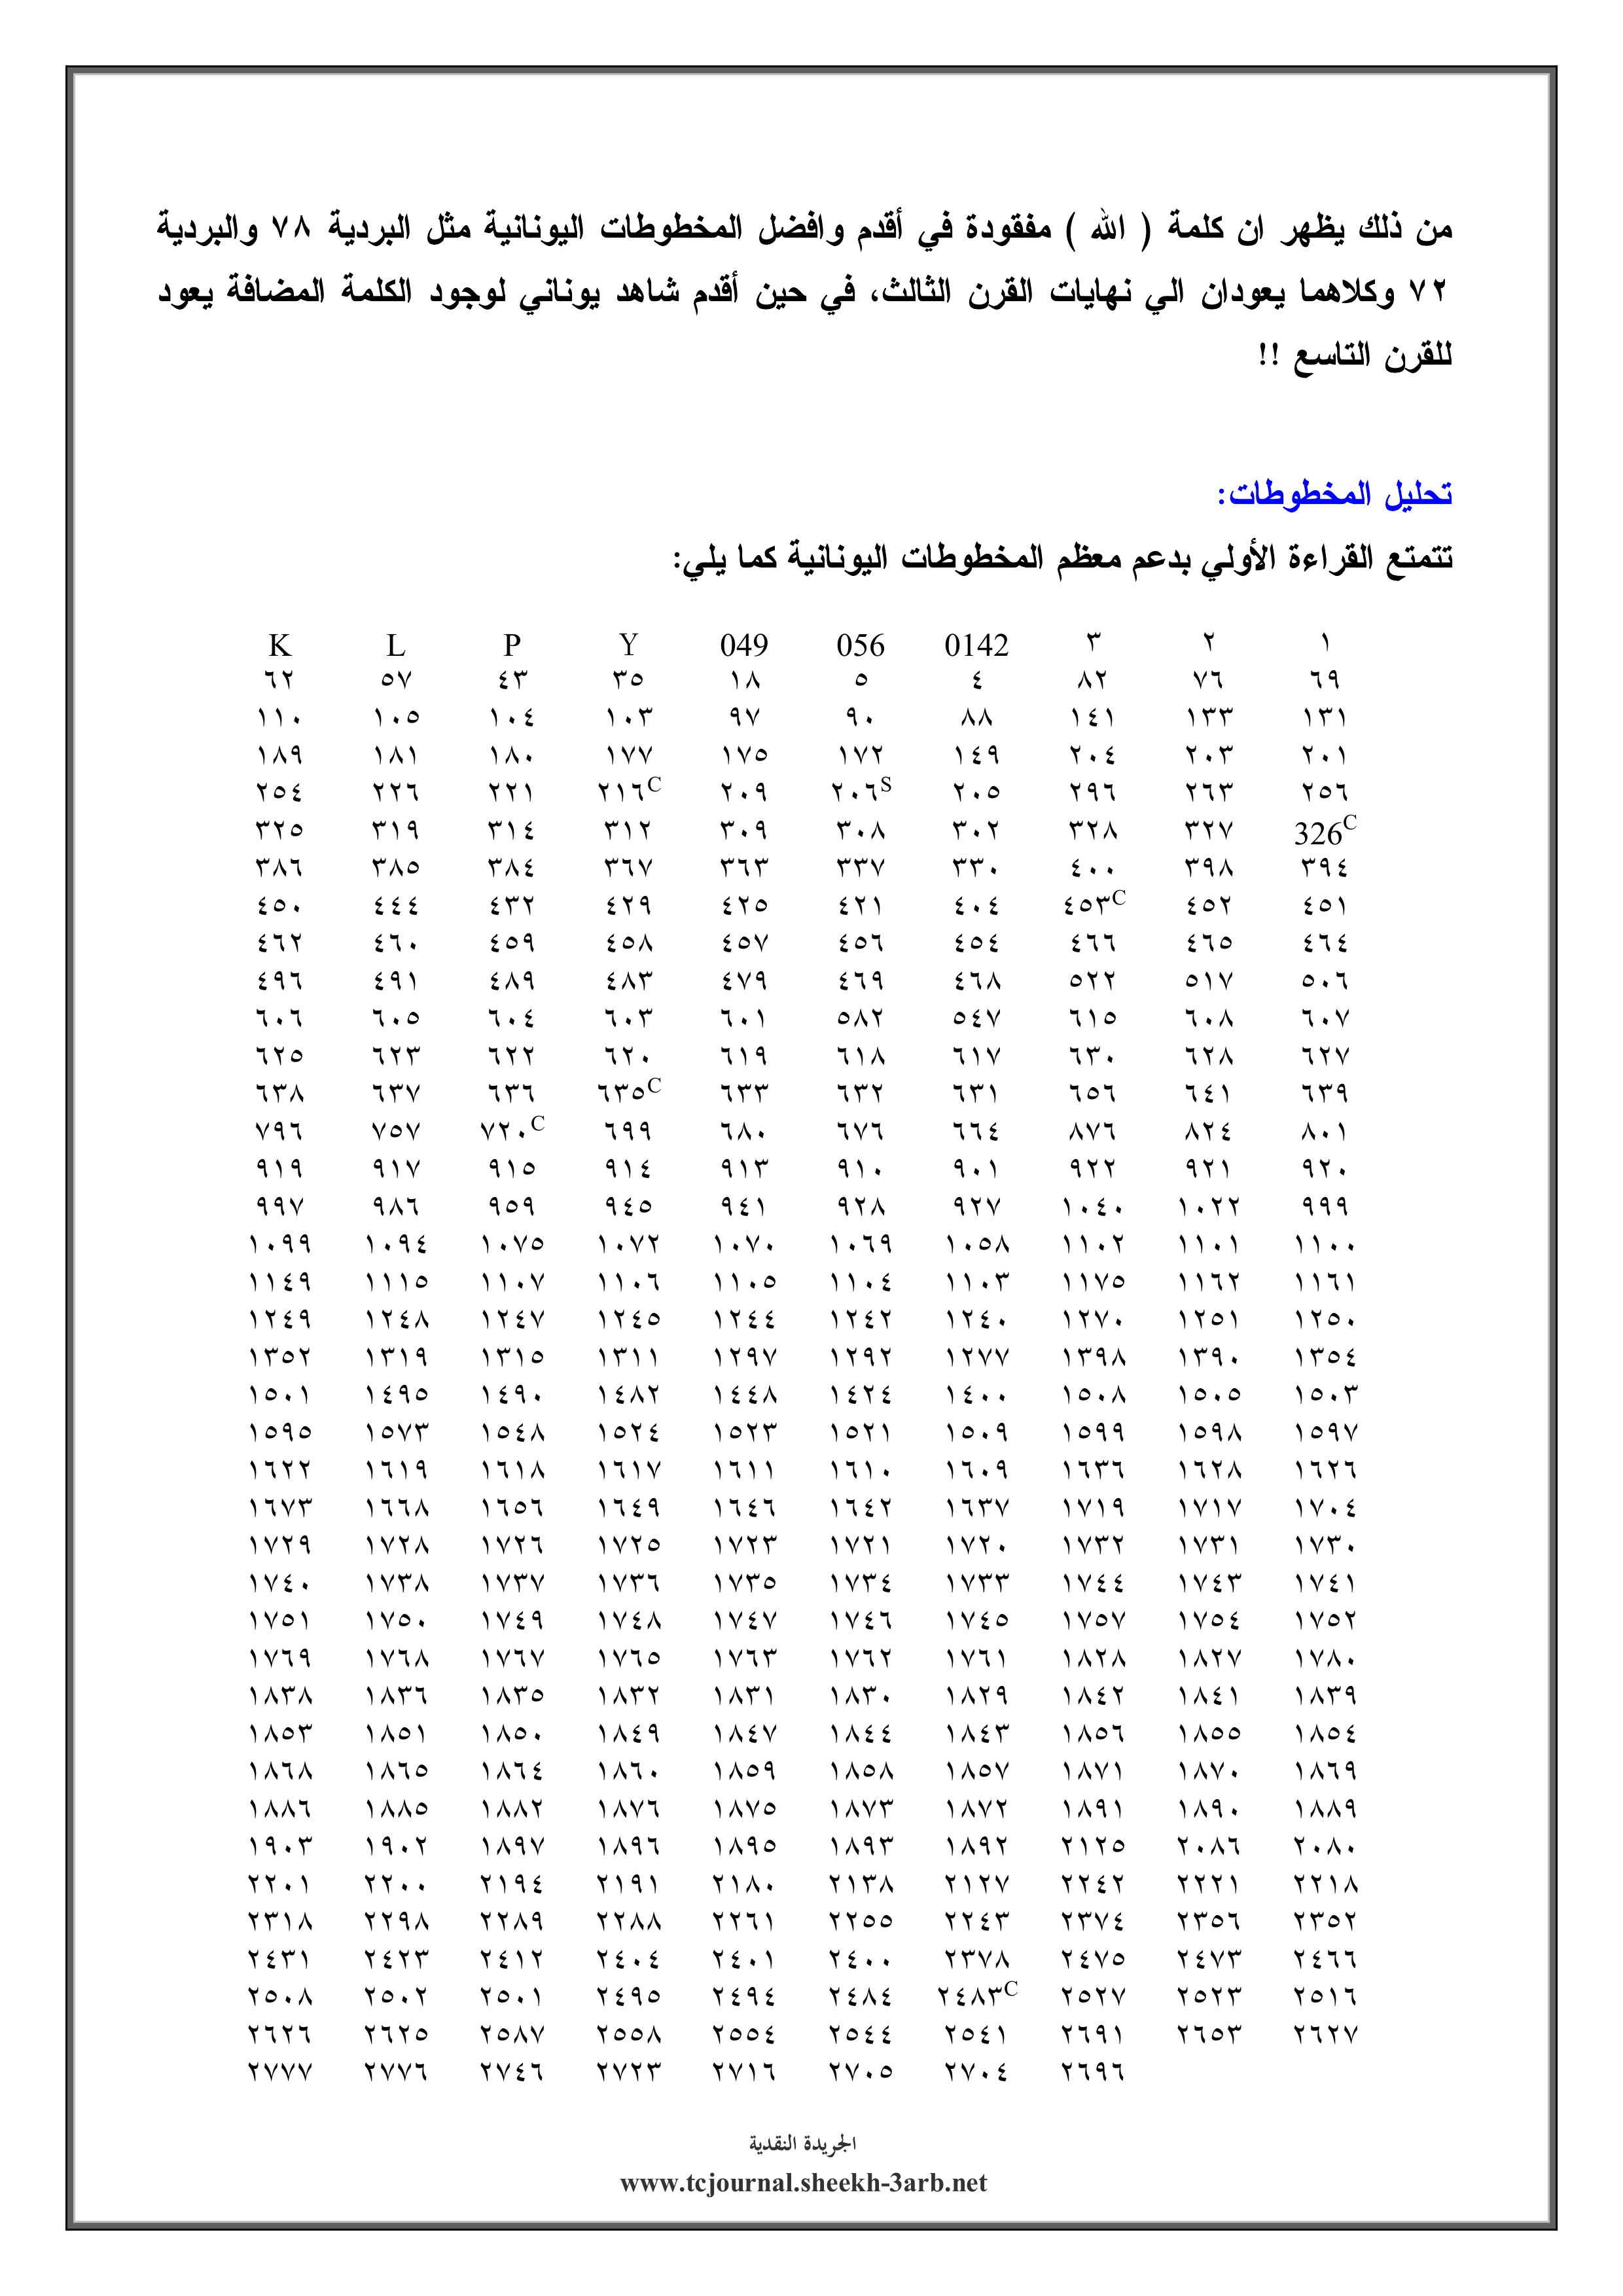 من ذلك يظهر ان كلمة ( الله ) مفقودة في أقدم وافضل المخطوطات اليونانية مثل البردية ٧٨ والبردية
٧٢ وكلاهما يعودان الي نهايات القرن الثالث، في حين أقدم شاهد يوناني لوجود الكلمة المضافة يعود
للقرن التاسع !!
تحليل المخطوطات:
تتمتع القراءة الأولي بدعم معظم المخطوطات اليونانية كما يلي:
K L P Y 049 056 0142 ٣ ٢ ١
٦٢ ٥٧ ٤٣ ٣٥ ١٨ ٥ ٤ ٨٢ ٧٦ ٦٩
١١٠ ١٠٥ ١٠٤ ١٠٣ ٩٧ ٩٠ ٨٨ ١٤١ ١٣٣ ١٣١
١٨٩ ١٨١ ١٨٠ ١٧٧ ١٧٥ ١٧٢ ١٤٩ ٢٠٤ ٢٠٣ ٢٠١
٢٥٤ ٢٢٦ ٢٢١ ٢١٦C ٢٠٩ ٢٠٦S ٢٠٥ ٢٩٦ ٢٦٣ ٢٥٦
٣٢٥ ٣١٩ ٣١٤ ٣١٢ ٣٠٩ ٣٠٨ ٣٠٢ ٣٢٨ ٣٢٧ 326C
٣٨٦ ٣٨٥ ٣٨٤ ٣٦٧ ٣٦٣ ٣٣٧ ٣٣٠ ٤٠٠ ٣٩٨ ٣٩٤
٤٥٠ ٤٤٤ ٤٣٢ ٤٢٩ ٤٢٥ ٤٢١ ٤٠٤ ٤٥٣C ٤٥٢ ٤٥١
٤٦٢ ٤٦٠ ٤٥٩ ٤٥٨ ٤٥٧ ٤٥٦ ٤٥٤ ٤٦٦ ٤٦٥ ٤٦٤
٤٩٦ ٤٩١ ٤٨٩ ٤٨٣ ٤٧٩ ٤٦٩ ٤٦٨ ٥٢٢ ٥١٧ ٥٠٦
٦٠٦ ٦٠٥ ٦٠٤ ٦٠٣ ٦٠١ ٥٨٢ ٥٤٧ ٦١٥ ٦٠٨ ٦٠٧
٦٢٥ ٦٢٣ ٦٢٢ ٦٢٠ ٦١٩ ٦١٨ ٦١٧ ٦٣٠ ٦٢٨ ٦٢٧
٦٣٨ ٦٣٧ ٦٣٦ ٦٣٥C ٦٣٣ ٦٣٢ ٦٣١ ٦٥٦ ٦٤١ ٦٣٩
٧٩٦ ٧٥٧ ٧٢٠C ٦٩٩ ٦٨٠ ٦٧٦ ٦٦٤ ٨٧٦ ٨٢٤ ٨٠١
٩١٩ ٩١٧ ٩١٥ ٩١٤ ٩١٣ ٩١٠ ٩٠١ ٩٢٢ ٩٢١ ٩٢٠
٩٩٧ ٩٨٦ ٩٥٩ ٩٤٥ ٩٤١ ٩٢٨ ٩٢٧ ١٠٤٠ ١٠٢٢ ٩٩٩
١٠٩٩ ١٠٩٤ ١٠٧٥ ١٠٧٢ ١٠٧٠ ١٠٦٩ ١٠٥٨ ١١٠٢ ١١٠١ ١١٠٠
١١٤٩ ١١١٥ ١١٠٧ ١١٠٦ ١١٠٥ ١١٠٤ ١١٠٣ ١١٧٥ ١١٦٢ ١١٦١
١٢٤٩ ١٢٤٨ ١٢٤٧ ١٢٤٥ ١٢٤٤ ١٢٤٢ ١٢٤٠ ١٢٧٠ ١٢٥١ ١٢٥٠
١٣٥٢ ١٣١٩ ١٣١٥ ١٣١١ ١٢٩٧ ١٢٩٢ ١٢٧٧ ١٣٩٨ ١٣٩٠ ١٣٥٤
١٥٠١ ١٤٩٥ ١٤٩٠ ١٤٨٢ ١٤٤٨ ١٤٢٤ ١٤٠٠ ١٥٠٨ ١٥٠٥ ١٥٠٣
١٥٩٥ ١٥٧٣ ١٥٤٨ ١٥٢٤ ١٥٢٣ ١٥٢١ ١٥٠٩ ١٥٩٩ ١٥٩٨ ١٥٩٧
١٦٢٢ ١٦١٩ ١٦١٨ ١٦١٧ ١٦١١ ١٦١٠ ١٦٠٩ ١٦٣٦ ١٦٢٨ ١٦٢٦
١٦٧٣ ١٦٦٨ ١٦٥٦ ١٦٤٩ ١٦٤٦ ١٦٤٢ ١٦٣٧ ١٧١٩ ١٧١٧ ١٧٠٤
١٧٢٩ ١٧٢٨ ١٧٢٦ ١٧٢٥ ١٧٢٣ ١٧٢١ ١٧٢٠ ١٧٣٢ ١٧٣١ ١٧٣٠
١٧٤٠ ١٧٣٨ ١٧٣٧ ١٧٣٦ ١٧٣٥ ١٧٣٤ ١٧٣٣ ١٧٤٤ ١٧٤٣ ١٧٤١
١٧٥١ ١٧٥٠ ١٧٤٩ ١٧٤٨ ١٧٤٧ ١٧٤٦ ١٧٤٥ ١٧٥٧ ١٧٥٤ ١٧٥٢
١٧٦٩ ١٧٦٨ ١٧٦٧ ١٧٦٥ ١٧٦٣ ١٧٦٢ ١٧٦١ ١٨٢٨ ١٨٢٧ ١٧٨٠
١٨٣٨ ١٨٣٦ ١٨٣٥ ١٨٣٢ ١٨٣١ ١٨٣٠ ١٨٢٩ ١٨٤٢ ١٨٤١ ١٨٣٩
١٨٥٣ ١٨٥١ ١٨٥٠ ١٨٤٩ ١٨٤٧ ١٨٤٤ ١٨٤٣ ١٨٥٦ ١٨٥٥ ١٨٥٤
١٨٦٨ ١٨٦٥ ١٨٦٤ ١٨٦٠ ١٨٥٩ ١٨٥٨ ١٨٥٧ ١٨٧١ ١٨٧٠ ١٨٦٩
١٨٨٦ ١٨٨٥ ١٨٨٢ ١٨٧٦ ١٨٧٥ ١٨٧٣ ١٨٧٢ ١٨٩١ ١٨٩٠ ١٨٨٩
١٩٠٣ ١٩٠٢ ١٨٩٧ ١٨٩٦ ١٨٩٥ ١٨٩٣ ١٨٩٢ ٢١٢٥ ٢٠٨٦ ٢٠٨٠
٢٢٠١ ٢٢٠٠ ٢١٩٤ ٢١٩١ ٢١٨٠ ٢١٣٨ ٢١٢٧ ٢٢٤٢ ٢٢٢١ ٢٢١٨
٢٣١٨ ٢٢٩٨ ٢٢٨٩ ٢٢٨٨ ٢٢٦١ ٢٢٥٥ ٢٢٤٣ ٢٣٧٤ ٢٣٥٦ ٢٣٥٢
٢٤٣١ ٢٤٢٣ ٢٤١٢ ٢٤٠٤ ٢٤٠١ ٢٤٠٠ ٢٣٧٨ ٢٤٧٥ ٢٤٧٣ ٢٤٦٦
٢٥٠٨ ٢٥٠٢ ٢٥٠١ ٢٤٩٥ ٢٤٩٤ ٢٤٨٤ ٢٤٨٣C ٢٥٢٧ ٢٥٢٣ ٢٥١٦
٢٦٢٦ ٢٦٢٥ ٢٥٨٧ ٢٥٥٨ ٢٥٥٤ ٢٥٤٤ ٢٥٤١ ٢٦٩١ ٢٦٥٣ ٢٦٢٧
٢٧٧٧ ٢٧٧٦ ٢٧٤٦ ٢٧٢٣ ٢٧١٦ ٢٧٠٥ ٢٧٠٤ ٢٦٩٦
الجريدة النقدية
www.tcjournal.sheekh-3arb.net